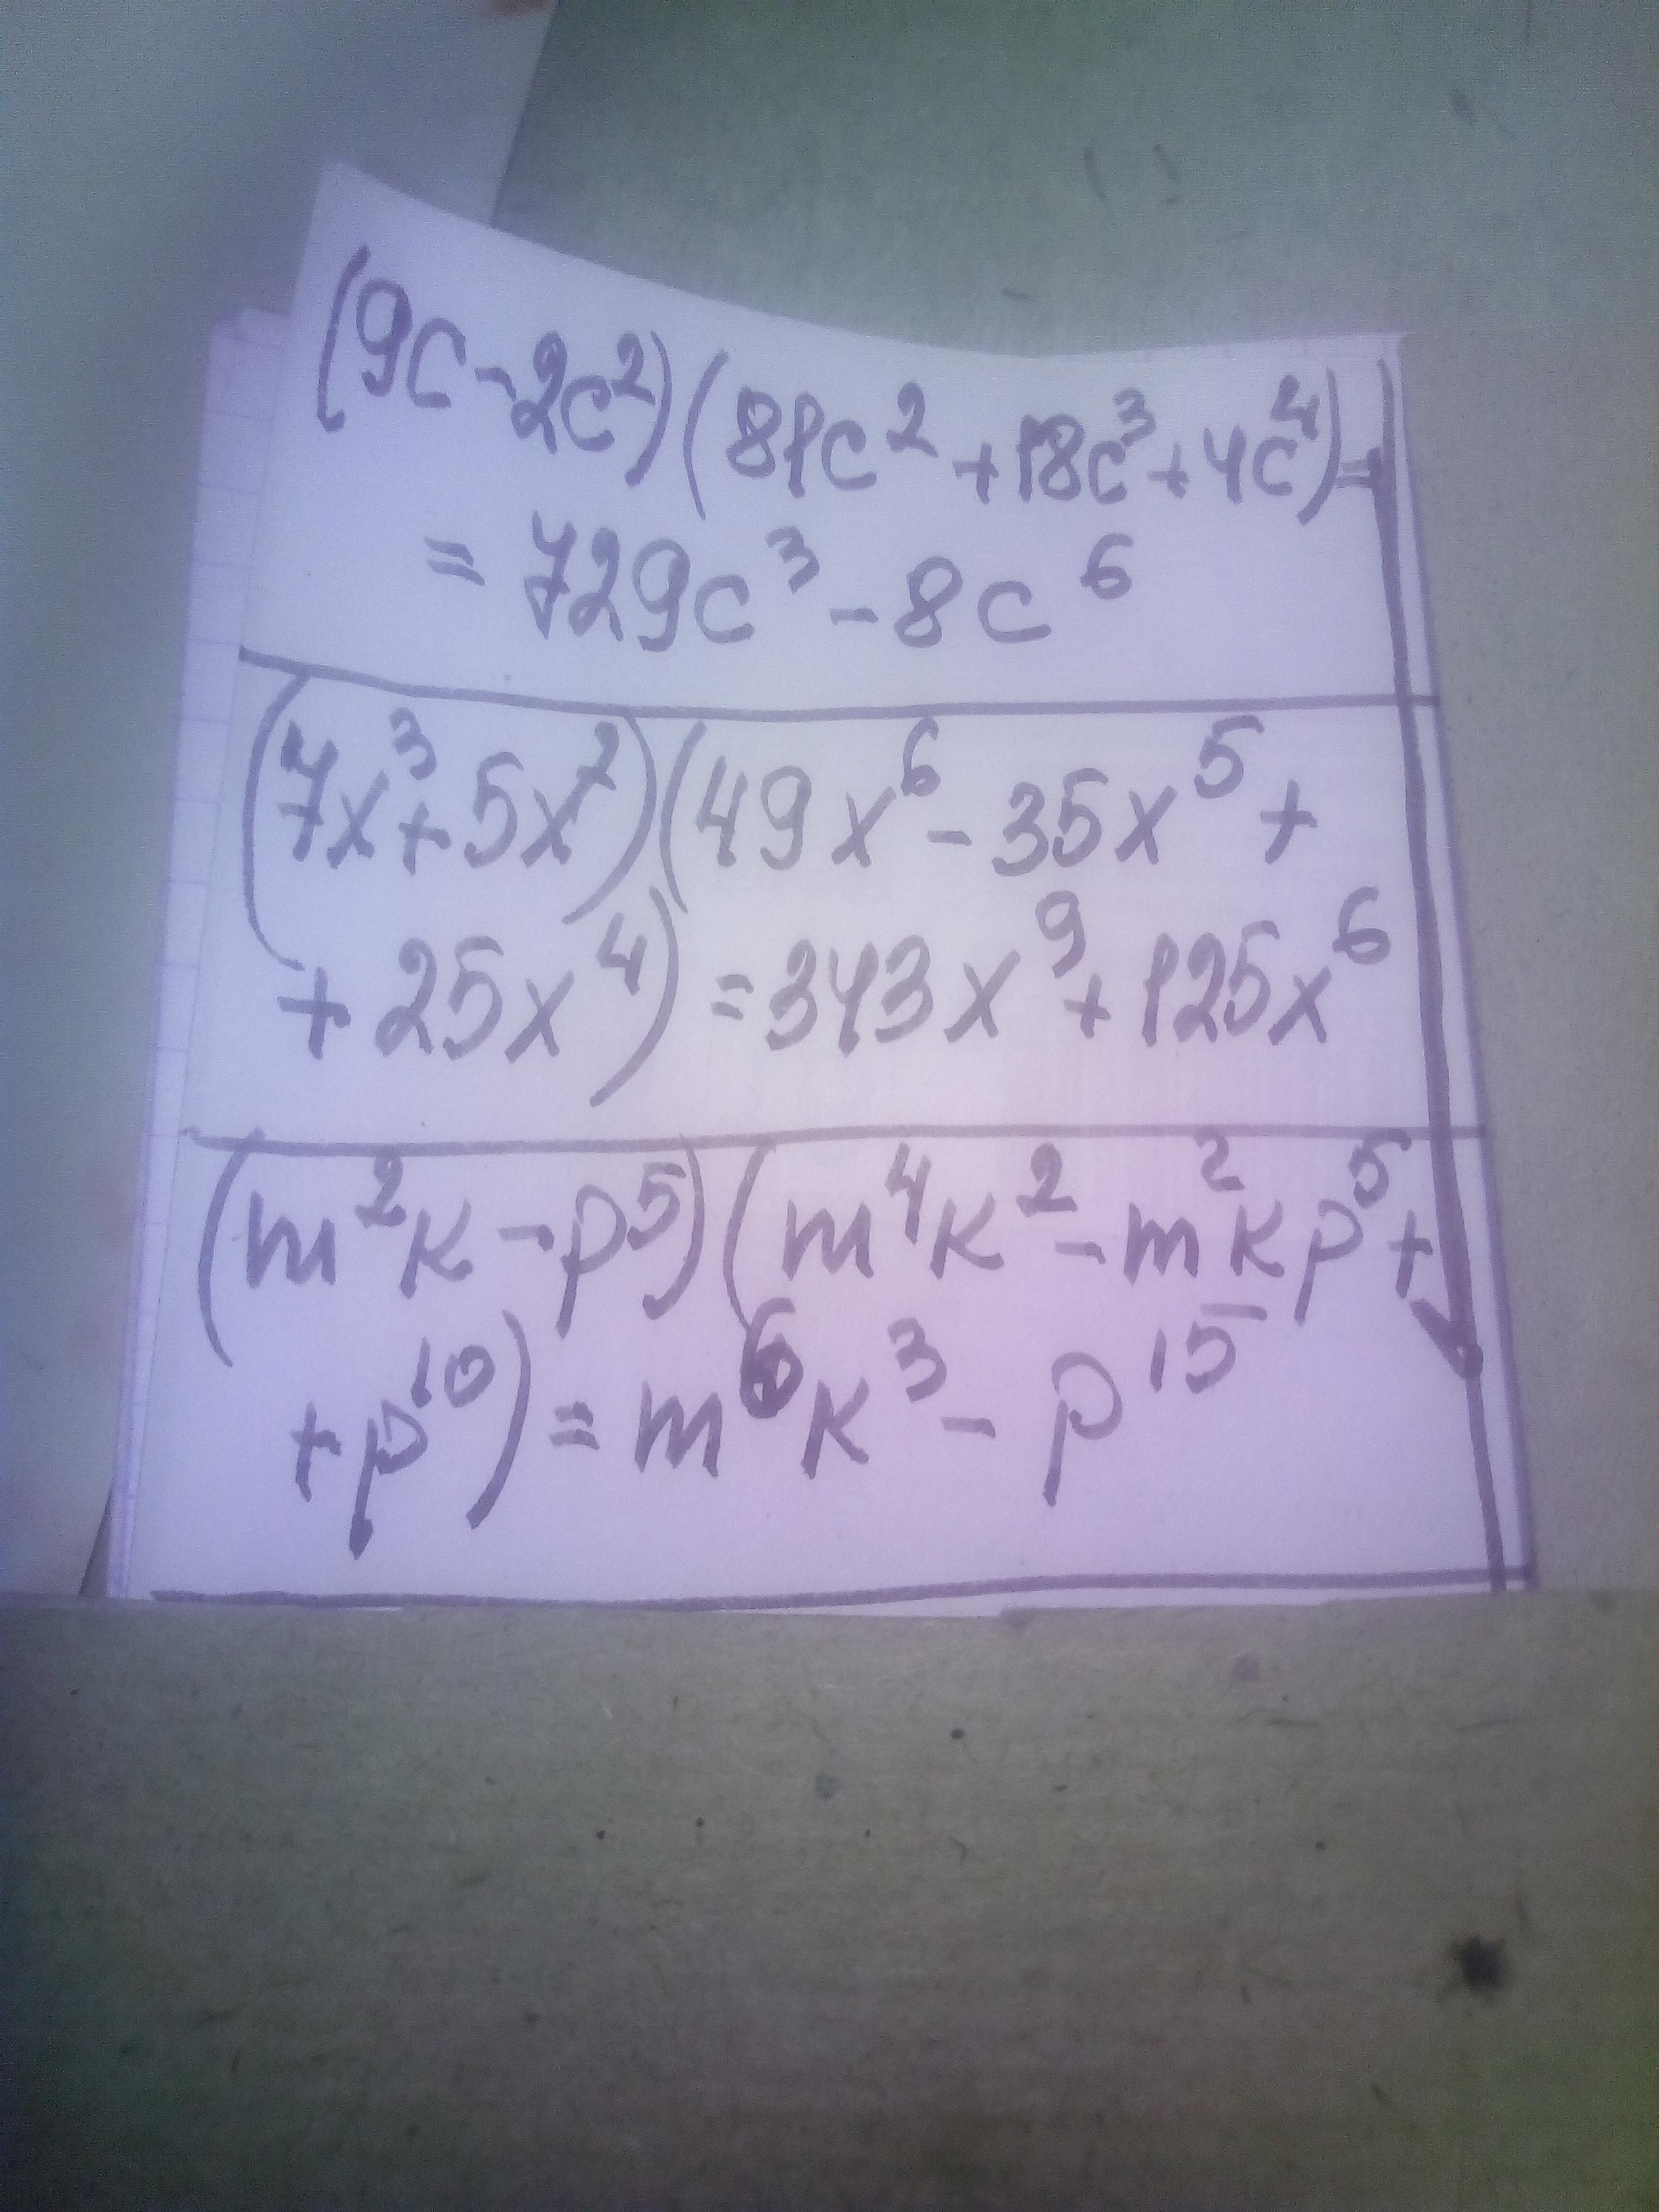 (9c-2c²)(81c²+18c³+4c⁴)=
=729c³-8c⁶
(7x³+5x²)(49x⁶-35x⁵+
+25x⁴)=343x⁹+125x⁶
(m²k-p⁵)(m⁴k²-m²kp⁵+
+p¹⁰)=m⁶k³-p¹⁵